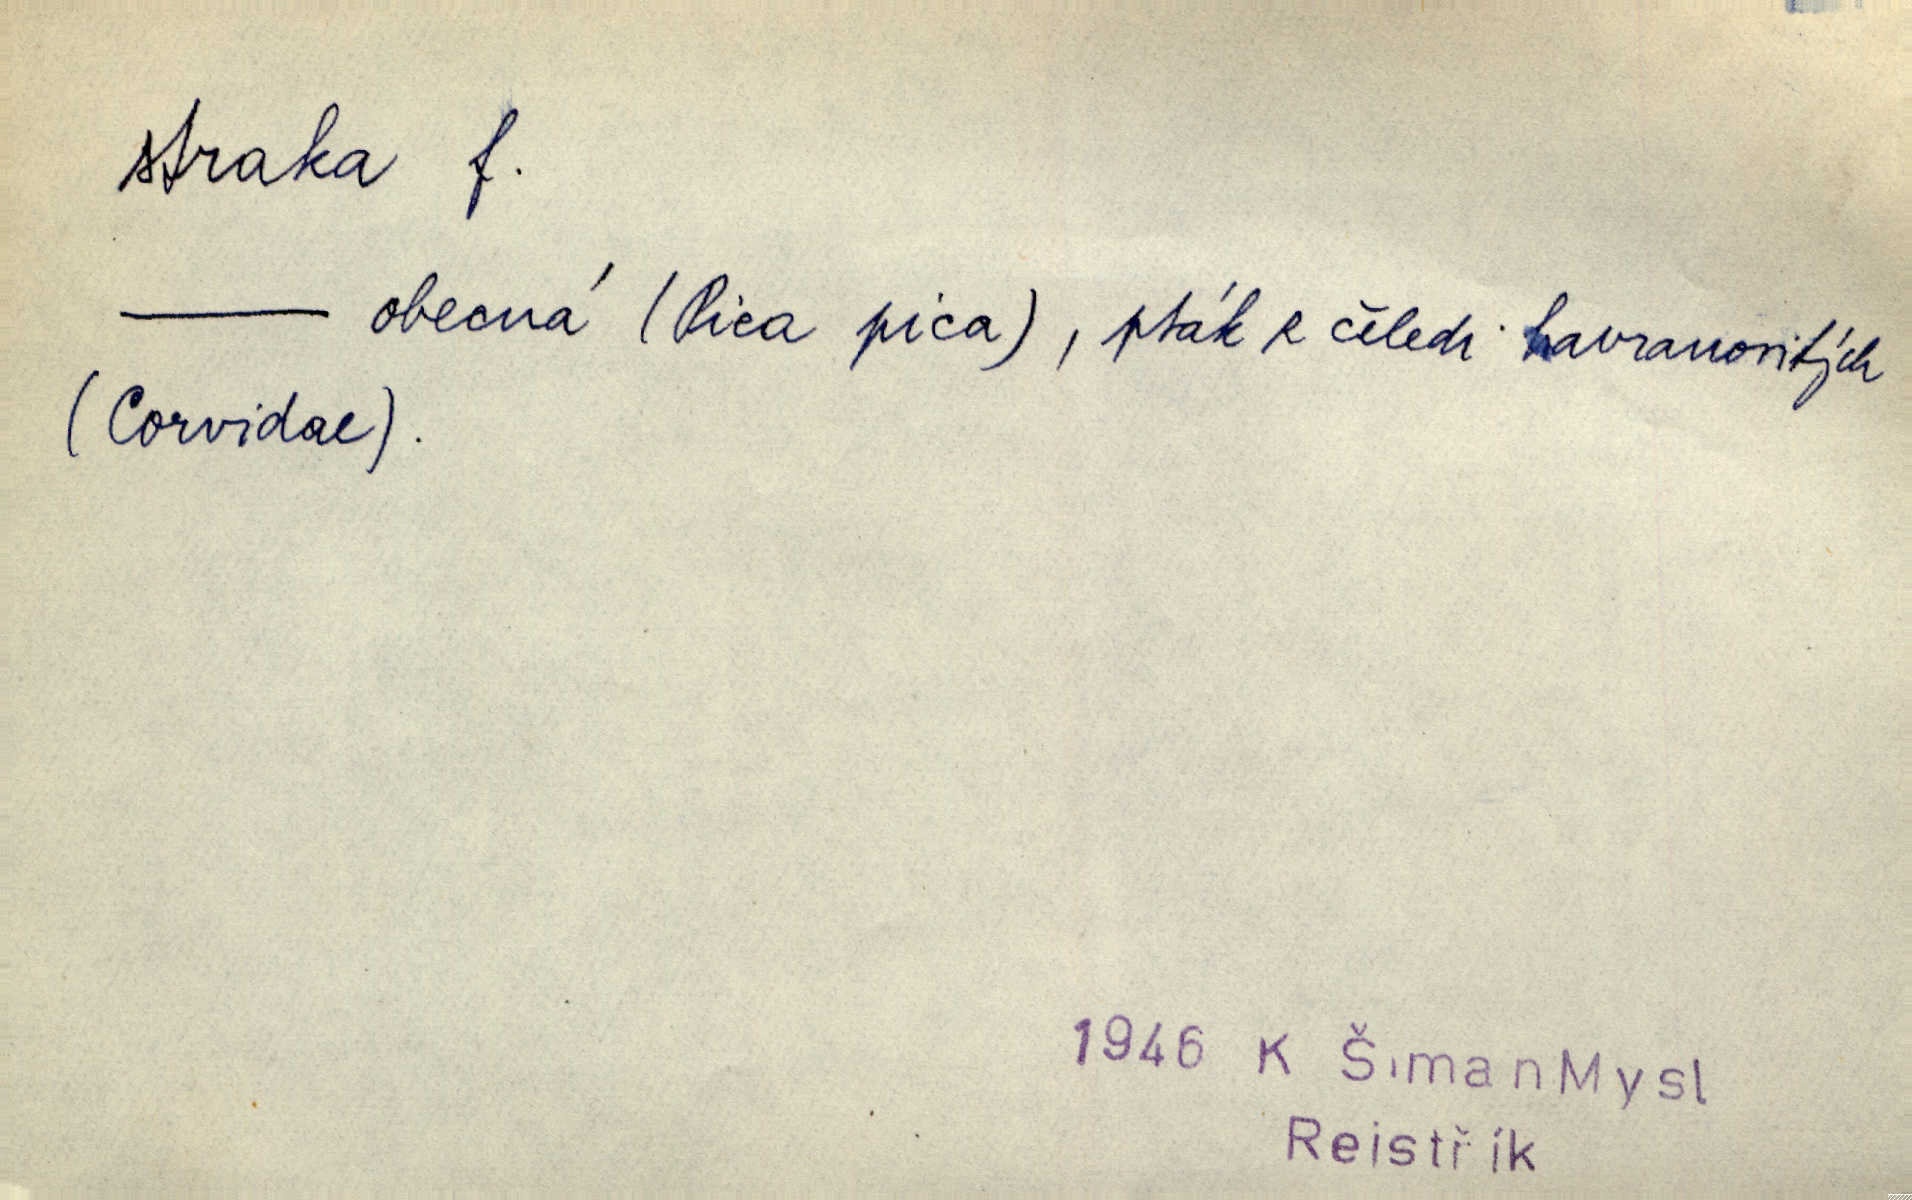 straka f.
——— obecná (Pica pica), pták z čeledi havranovitých
(Corvidae).
1946 K ŠimanMysl
Reistřík